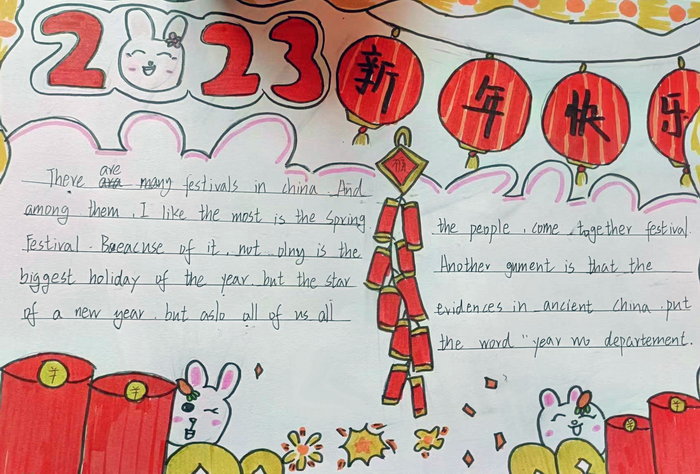 2023
新年快乐
There are many festivals in china. And
among them, I like the most is the Spring
Festival. Beacuse of it, not olny is the
biggest holiday of the year but the star
of a new year, but aslo all of us all
the people, come together festival.
Another gument is that the
evidences in ancient china put
the word "year no departement.